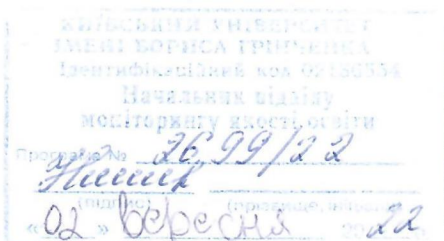 КИЇВСЬКИЙ УНІВЕРСИТЕТ
ІМЕНІ БОРИСА ГРІНЧЕНКА
Ідентифікаційний код 02136554
Начальник відділу
моніторингу якості освіти
Програма № 2699/22
(підпис) (прізвище,
«02» вересня 2022